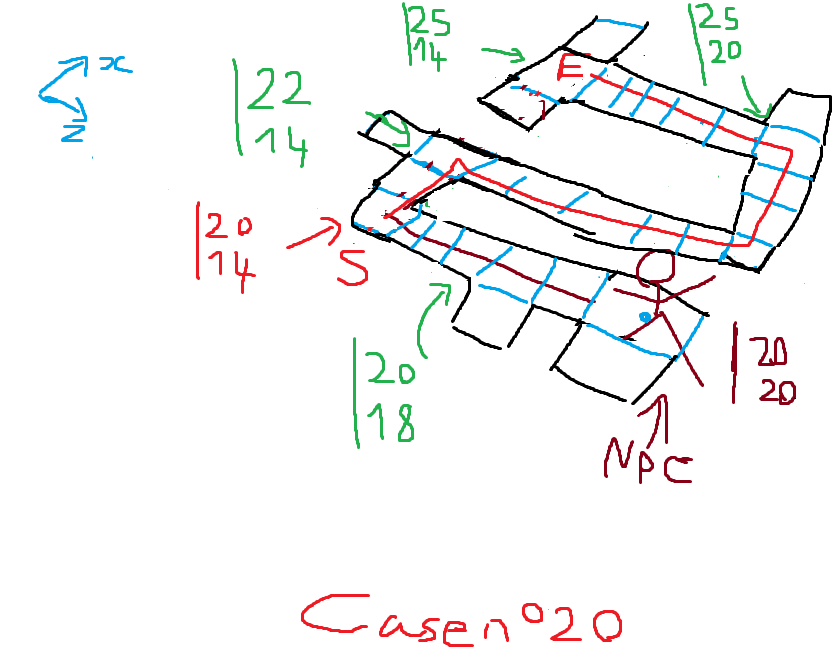 25
14
25
20
x
z
22
14
E
20
14
S
20
18
20
20
NPC
Case n°20